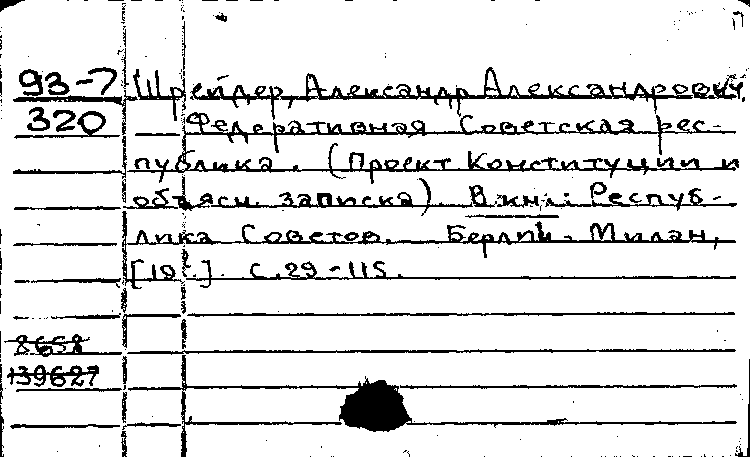 П
93-7 Шрейдер, Александр Александрович.
320 Федеративная Советская рес-
публика. (Проект Конституции и
объясн. записка). В кн.: Респуб-
лика Советов. Берлин - Милан,
[19 ]. С. 29-115.
8658
139627